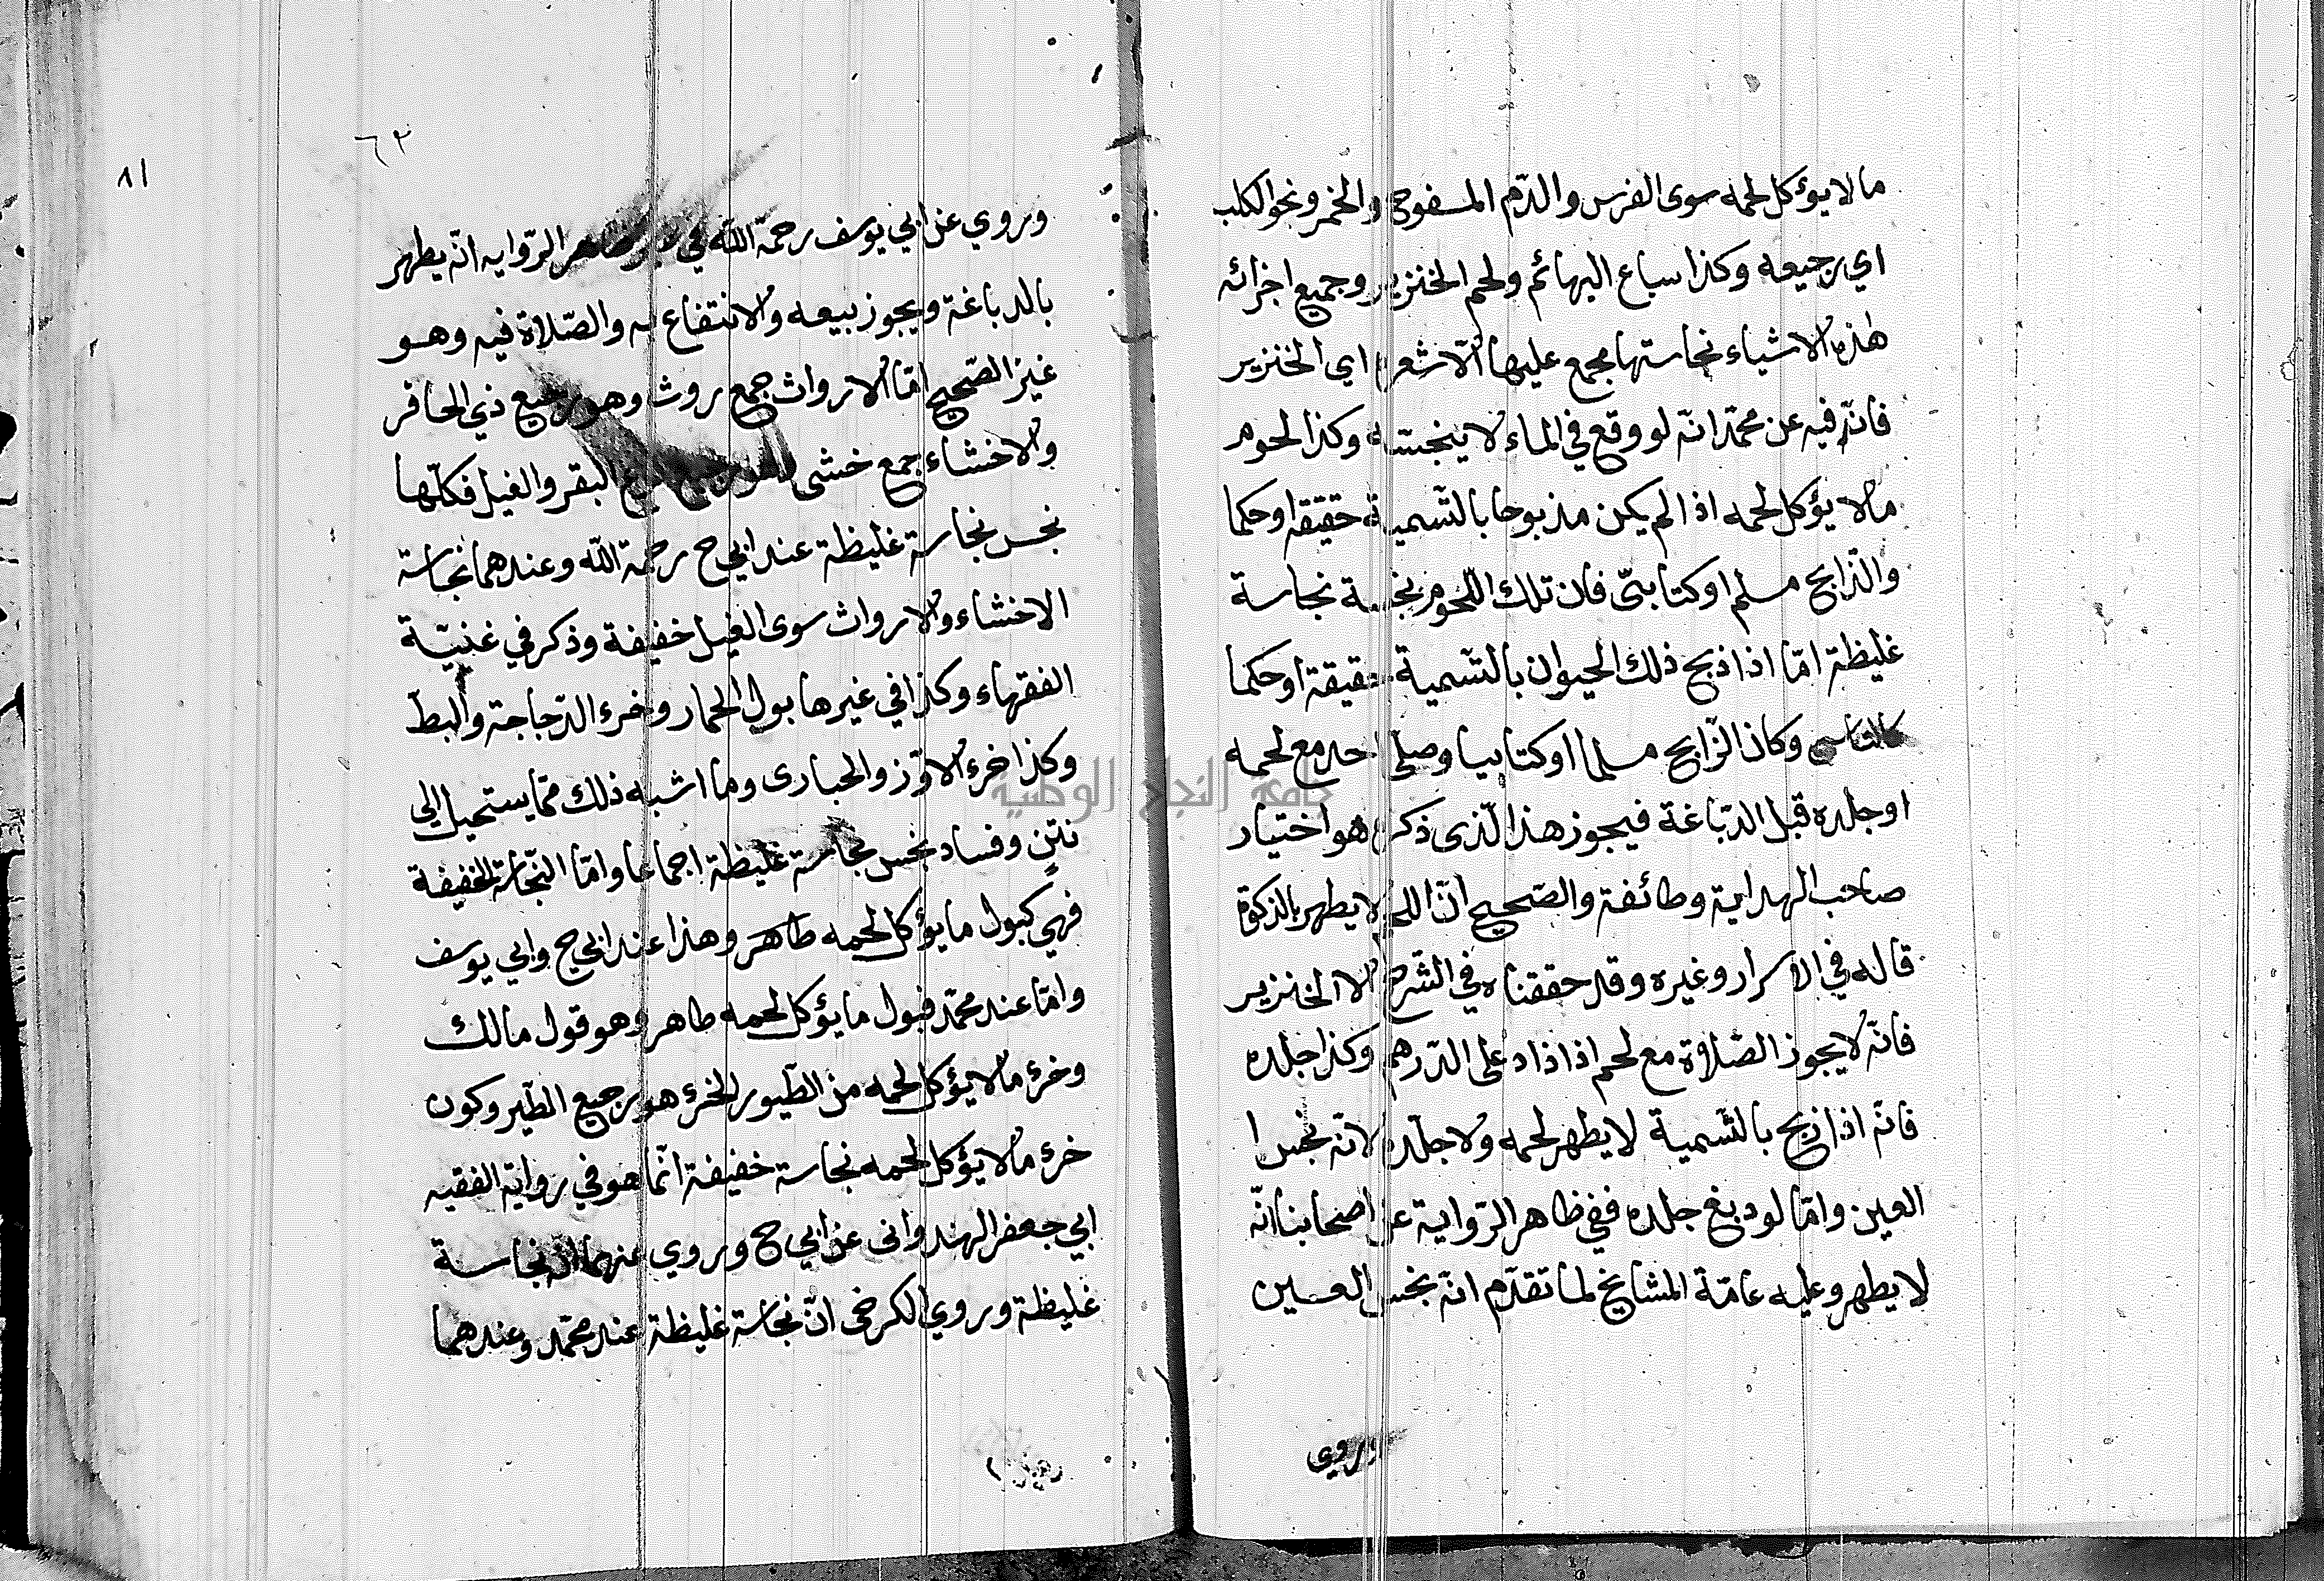 ما لا يؤكل لحمه سوى الفرس والدّم المسفوح والخمر ونجو الكلب
اي رجيعه وكذا سباع البهائم ولحم الخنزير وجميع اجزائه
هذه الاشياء نجاستها مجمع عليها الّا شعره اي الخنزير
فانّه فيه عن محمّد انّه لو وقع في الماء لا ينجسّه وكذا لحوم
ما لا يؤكل لحمه اذا لم يكن مذبوحا بالتّسمية حقيقة او حكما
والذّابح مسلم او كتابىّ فان تلك اللّحوم نجسة نجاسة
غليظة امّا اذا ذبح ذلك الحيوان بالتّسمية حقيقة او حكما
كالنّاسى وكان الذّابح مسلما او كتابيا وصلى احد مع لحمه
او جلده قبل الدّباغة فيجوز هذا الّذى ذكره هو اختيار
صاحب الهداية وطائفة والصّحيح انّ اللحم لا يطهر بالذكوة
قاله في الاسرار وغيره وقد حققناه في الشّرح الا الخنزير
فانّه لا يجوز الصّلاوة مع لحم اذا ذاد على الدّرهم وكذا جلده
فانّه اذا ذبح بالتّسمية لا يطهر لحمه ولا جلده لانّه نجس ا
العين وامّا لو دبغ جلده ففي ظاهر الرّواية عن اصحابنا انّه
لا يطهر وعليه عامّة المشايخ لما تقدّم انّه نجس العين
وروي
٦٢
٨١
وروي عن ابي يوسف رحمة اللّه في غير ظاهر الرّوايه انّه يطهر
بالدباغة ويجوز بيعه والانتفاع به والصّلاة فيه وهو
غيرُ الصّحيح امّا الارواث جمع روث وهو رجيع ذي الحافر
والاخشاء جمع خشى البقر والفيل فكلّها
نجس نجاسة غليظة عند ابي ح رحمة اللّه وعندهما نجاسة
الاخشاء والارواث سوى الفيل خفيفة وذكر في غنيّة
الفقهاء وكذا في غيرها بول الحمار وخرء الدّجاجة والبطّ
وكذا خرء الاوّز والحبارى وما اشبه ذلك ممّا يستحيل الي
نتن وفساد نجس نجاسة غليظة اجماعا وامّا النّجاسة الخفيفة
فهي كبول ما يؤكل لحمه طاهر وهذا عند ابي ح وابي يوسف
وامّا عند محمّد فبول ما يؤكل لحمه طاهر وهو قول مالك
وخرء ما لا يؤكل لحمه من الطّيور الخرء هو رجيع الطّير وكون
خرء ما لا يؤكل لحمه نجاسة خفيفة انّما هو في رواية الفقيه
ابي جعفر الهندوانى عن ابي ح وروي عنهما انّه نجاسة
غليظة وروي الكرخى انّ نجاسة غليظة عند محمّد وعندهما
جامعة النجاح الوطنية